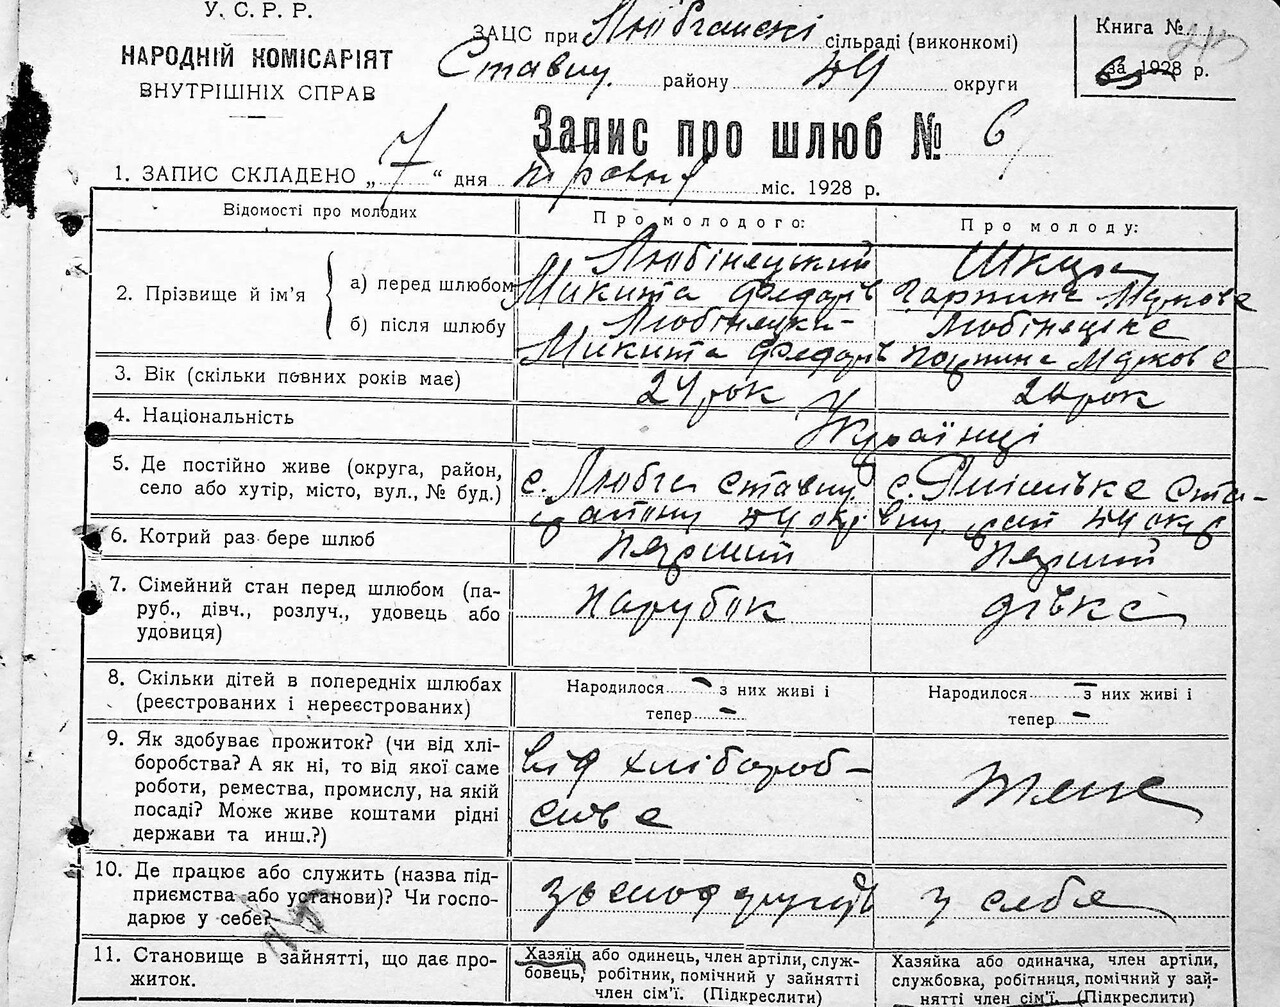 У. С. Р. Р.
НАРОДНІЙ КОМІСАРІЯТ
ВНУТРІШНІХ СПРАВ
ЗАЦС при сільраді (виконкомі)
Ставищ. району БЦ округи
Книга №
за 1928 р.
Запис про шлюб № 6
1. ЗАПИС СКЛАДЕНО „ 7 “ дня травня міс. 1928 р.
Відомості про молодих
Про молодого:
Про молоду:
2. Прізвище й ім'я
а) перед шлюбом
Любінецький
Микита Федорів
Шкура
Марков
б) після шлюбу
Микита Федорів
Любінецьке
Марков
3. Вік (скільки повних років має)
24 рок
рок
4. Національність
Українці
5. Де постійно живе (округа, район,
село або хутір, місто, вул., № буд.)
с. ставищ
району БЦ окр.
с. Ста-
вищ рай БЦ окр
6. Котрий раз бере шлюб
Перший
Перший
7. Сімейний стан перед шлюбом (па-
руб., дівч., розлуч., удовець або
удовиця)
парубок
дівка
8. Скільки дітей в попередніх шлюбах
(реєстрованих і нереєстрованих)
Народилося — з них живі і
тепер —
Народилося — з них живі і
тепер —
9. Як здобуває прожиток? (чи від хлі-
боробства? А як ні, то від якої саме
роботи, ремества, промислу, на якій
посаді? Може живе коштами рідні
держави та инш.?)
від хлібороб-
ства
10. Де працює або служить (назва під-
приємства або установи)? Чи госпо-
дарює у себе?
у себе
11. Становище в зайнятті, що дає про-
житок.
Хазяїн або одинець, член артіли, служ-
бовець, робітник, помічний у зайнятті
член сім'ї. (Підкреслити)
Хазяйка або одиначка, член артіли,
службовка, робітниця, помічний у зай-
нятті член сім'ї. (Підкреслити)